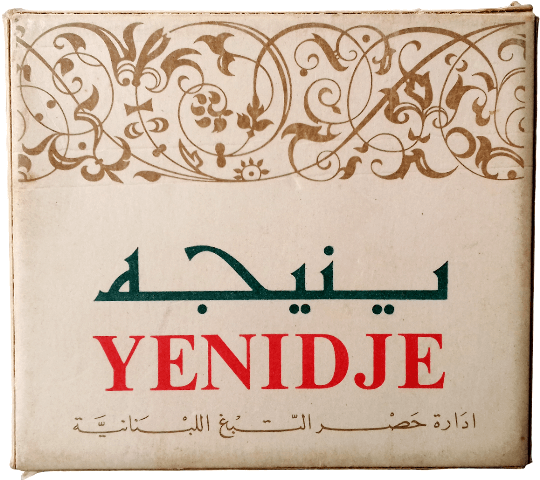 ينيجه
YENIDJE
ادَارة حَصْر التّبْغ اللبْنَانيَّة